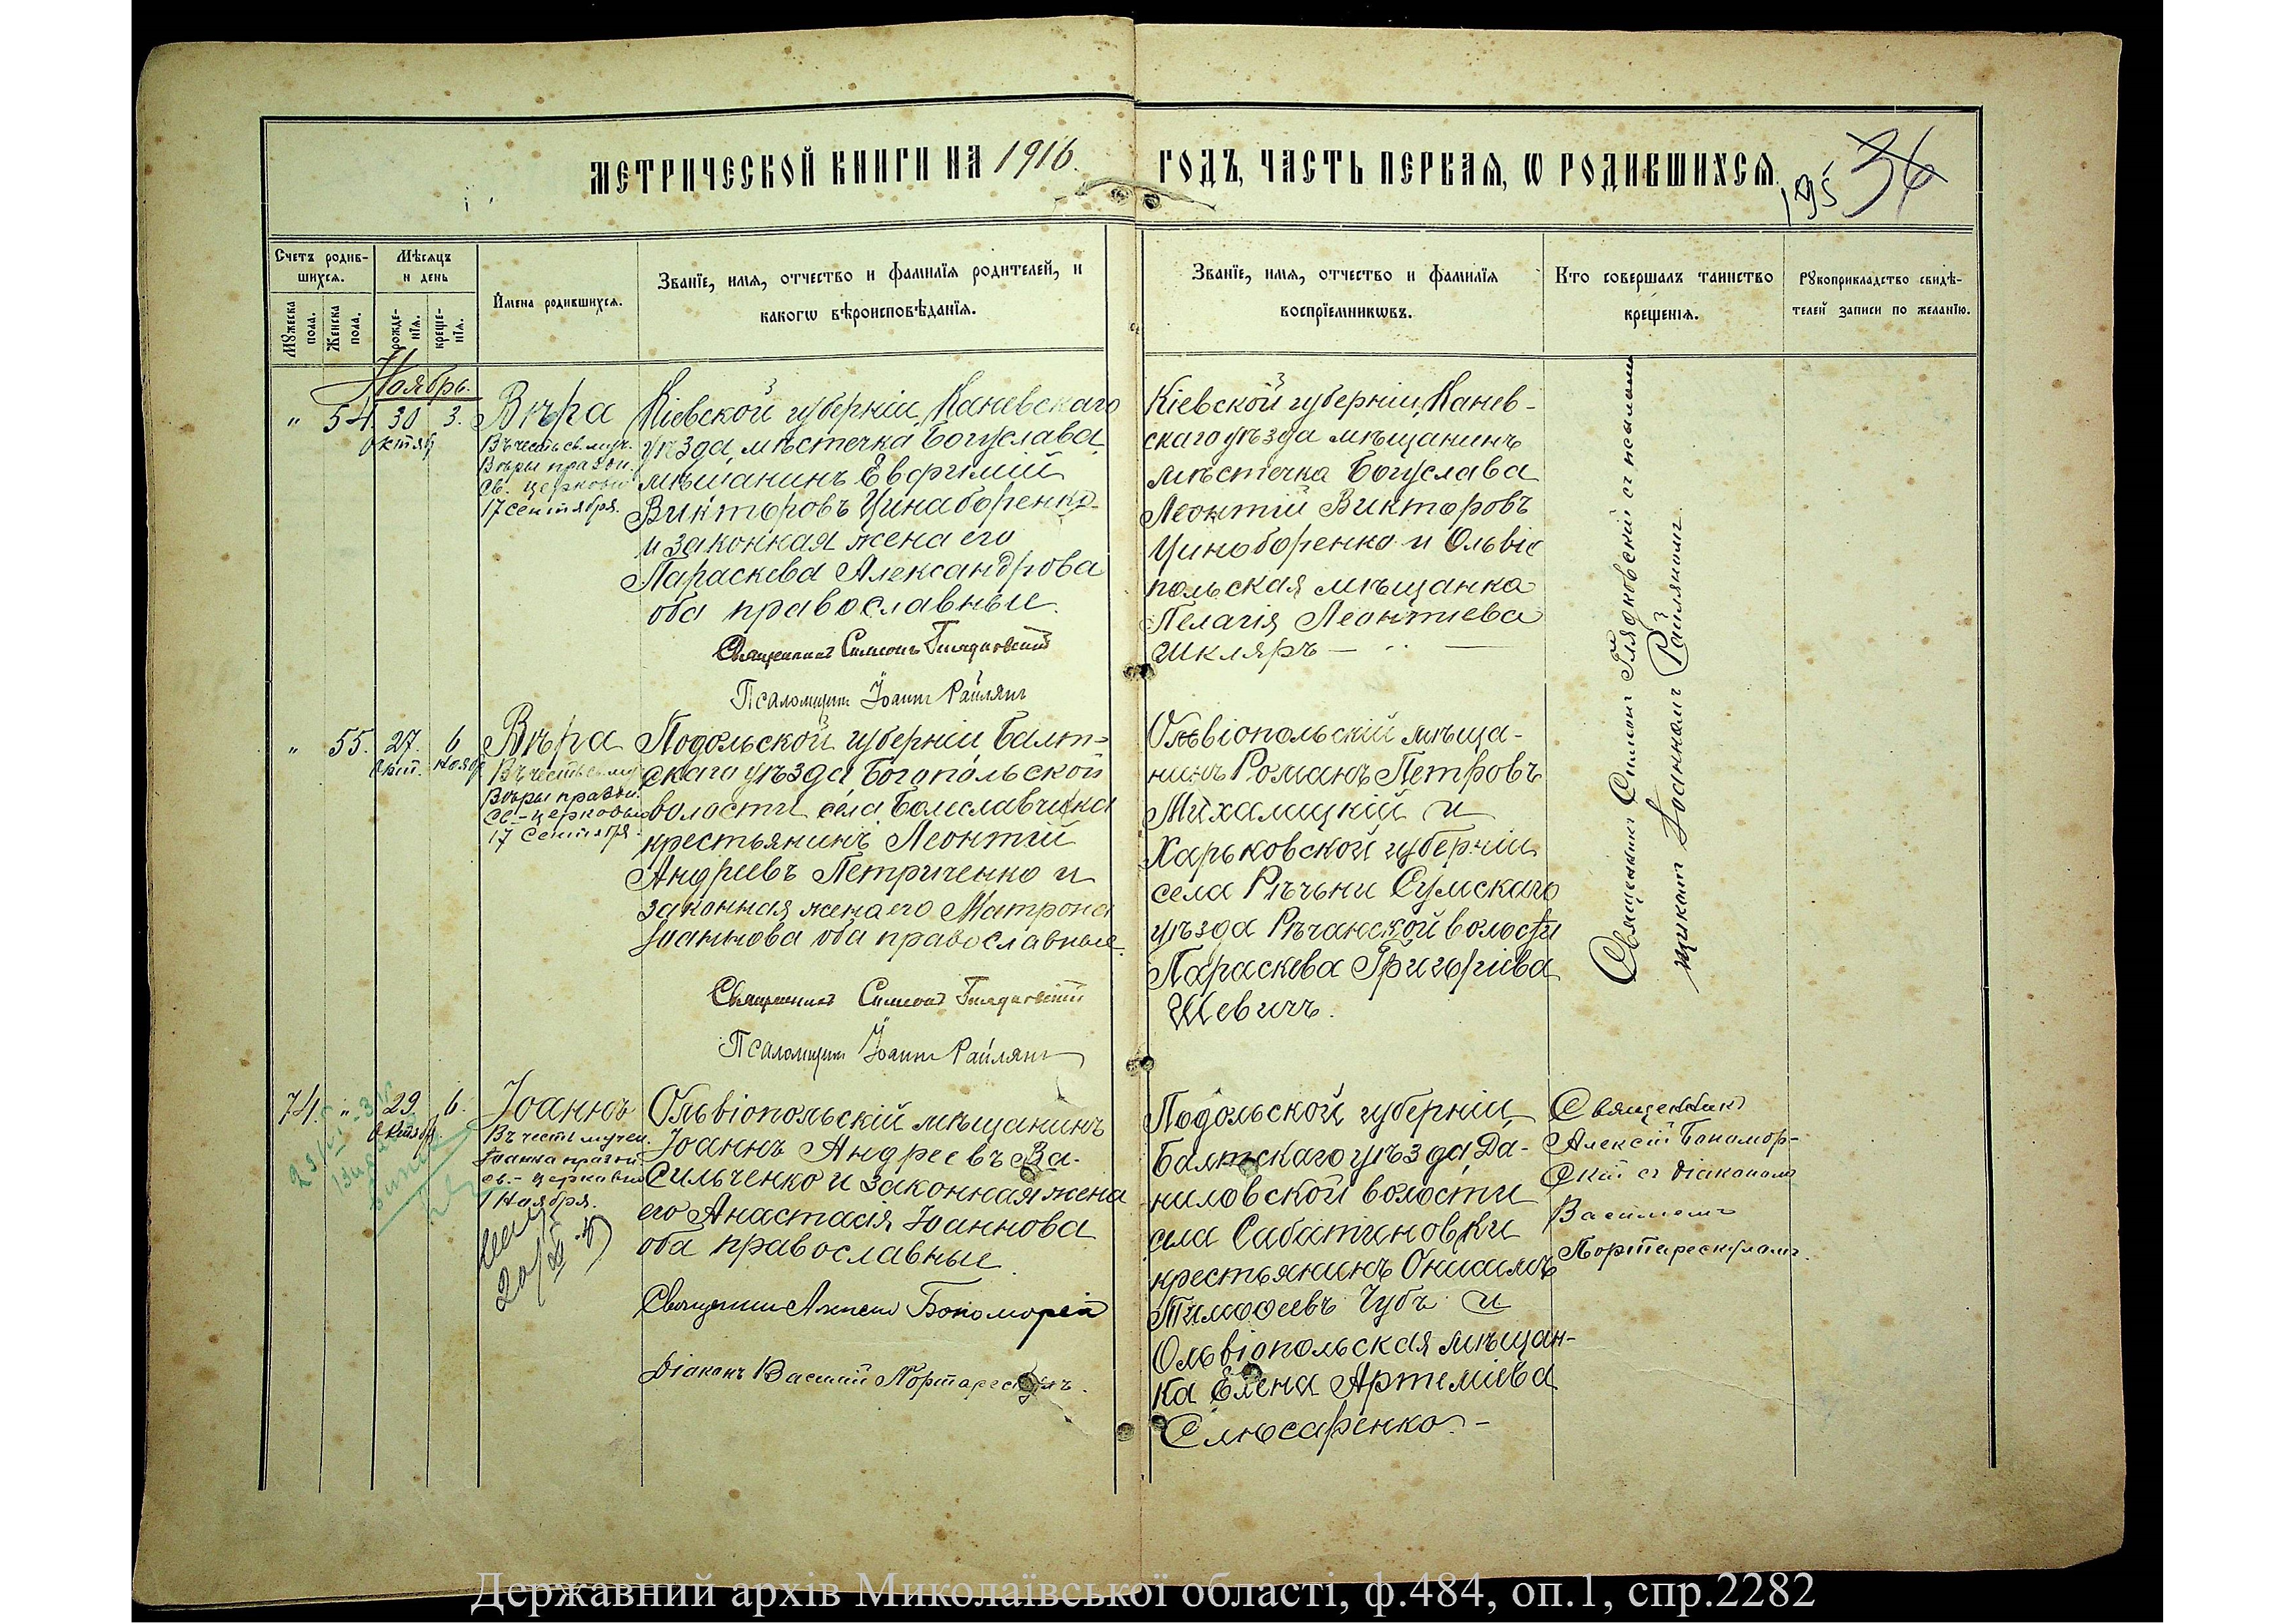 МЕТРИЧЕСКОЙ КНИГИ НА 1916
ГОДЪ, ЧАСТЬ ПЕРВАЯ, Ѡ РОДИВШИХСЯ
195 36
Счетъ родив-
шихся.
Мꙋжеска
пола.
Женска
пола.
Мѣсяцъ
и день
рожде-
нїѧ.
креще-
нїѧ.
Имена родившихся.
Званїе, имѧ, отчество и фамилїѧ родителей, и
какогѡ вѣроисповѣданїѧ.
Званїе, имѧ, отчество и фамилїѧ
воспрїемникѡвъ.
Кто совершалъ таинство
крещенїѧ.
Рꙋкоприкладство свидѣ-
телей записи по желанїю.
Ноябрь.
" 54. 30 3.
Октяб
Вѣра
Въ честь св. муч.
Вѣры праздн.
св. церковію
17 сентября.
Кіевской губерніи, Каневскаго
уѣзда, мѣстечка Богуслава
мѣщанинъ Евфимій
Викторовъ Цинаборенко
и законная жена его
Параскева Александрова
оба православные.
Священникъ Симеонъ Глядковскій
Псаломщикъ Іоаннъ Райлянъ
Кіевской губерніи, Канев-
скаго уѣзда мѣщанинъ
мѣстечка Богуслава
Леонтій Викторовъ
Циноборенко и Ольвіо
польская мѣщанка
Пелагія Леонтиева
Шкляръ
Священникъ Симеонъ Глядковскій съ псалом
щикомъ Іоанномъ Райляномъ.
" 55. 27. 6
Окт. Нояб
Вѣра
Въ честь св. муч.
Вѣры праздн.
св. церковію
17 Сентября.
Подольской губерніи Балт-
скаго уѣзда Богопольской
волости села Болеславчика
крестьянинъ Леонтій
Андреевъ Петриченко и
законная жена его Матрона
Іоаннова оба православные.
Священникъ Симеонъ Глядковскій
Псаломщикъ Іоаннъ Райлянъ
Ольвіопольскій мѣща-
нинъ Романъ Петровъ
Михалицкій и
Харьковской губерніи
села Рѣчьки Сумскаго
уѣзда Рѣчанской волости
Параскева Григориева
Шевичъ.
74. " 29 6.
Октября
Іоаннъ
Въ честь мучен.
Іоанна праздн.
св. церковію
1 Ноября.
Ольвіопольскій мѣщанинъ
Іоаннъ Андреевъ Ва-
сильченко и законная жена
его Анастасія Іоаннова
оба православные.
Священникъ Алексій Бономорскій
Діаконъ Василій Портарескулъ.
Подольской губерніи
Балтскаго уѣзда, Да-
ниловской волости
села Сабатиновки
крестьянинъ Онисимъ
Тимофеевъ Чубъ и
Ольвіопольская мѣщан-
ка Елена Артемиева
Слюсаренко. -
Священникъ
Алексій Бономор-
скій съ діакономъ
Василіемъ
Портарескуломъ.
Державний архів Миколаївської області, ф.484, оп.1, спр.2282